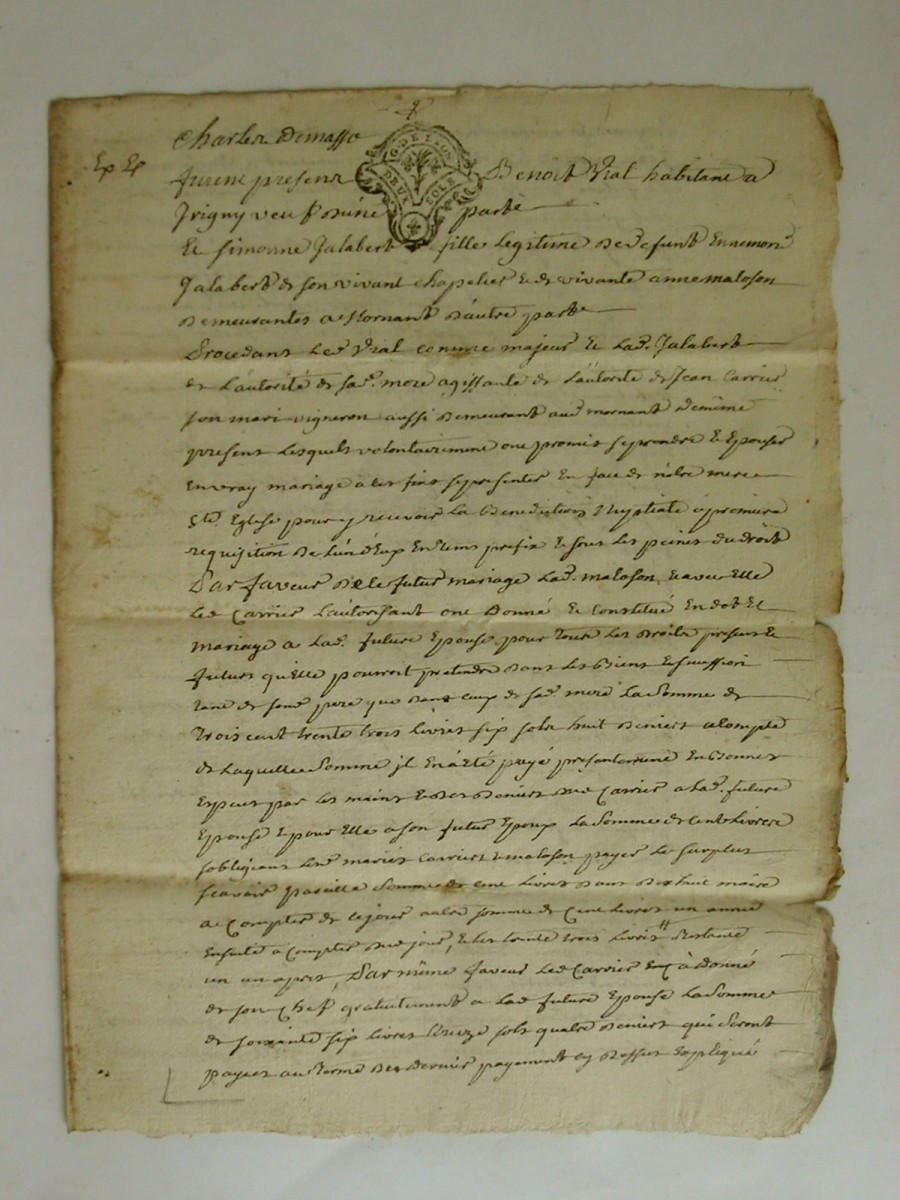 Charles Demasso
G. DE LYON
DEUX SOLS
Ex Ex
furent presens Benoit Vial habitant a
Irigny veuf d'une parte
Et simonne Jalabert fille legitime de defunt Ennemon
Jalabert de son vivant chapelier et de vivante anne maloson
demeurantes a Mornant d'autre parte
Procedant Led. Vial comme majeur Et Lad. Jalabert
de L'autorité de sad. mere agissante de L'autorité de Jean Carrier
son mari vigneron aussi demeurant aud. mornant de même
present Lesquels volontairement ont promis se prendre et Epouser
En vray mariage a ces fins se presenter En face de nôtre mere
Ste. Eglise pour y recevoir La Benediction Nuptiale a premiere
requisition de L'un d'Eux En tems prefix Et sous Les peines du droit
Par faveur de ce futur mariage Lad. maloson et avec Elle
Led. Carrier L'autorisant ont Donné Et Constitué En dot Et
mariage a Lad. future Epouse pour tous Les droits presens Et
futurs qu'Elle pourroit pretendre dans Les Biens Et succession
tant de sond. pere que dans ceux de sad. mere La Somme de
Trois cent trente trois Livres six sols huit deniers a Compte
de Laquelle Somme il En a été payé presentement En Bonnes
Especes par Les mains Et des deniers dud. Carrier a Lad. future
Epouse Et pour Elle a son futur Epoux La Somme de Cent Livres
s'obligeans Lesd. mariés Carrier Et maloson payer Le surplus
scavoir pareille Somme de cent Livres dans dix huit mois
a Compter de ce jour autre somme de Cent Livres un année
Ensuite a Compter dud. jour, Et Les trente trois Livres restante
un an après, Par même faveur Led. Carrier a Donné
de son Chef gratuitement a Lad. future Epouse La Somme
de soixante six Livres treize sols quatre deniers qui seront
payés au terme du dernier payement cy dessus Expliqué